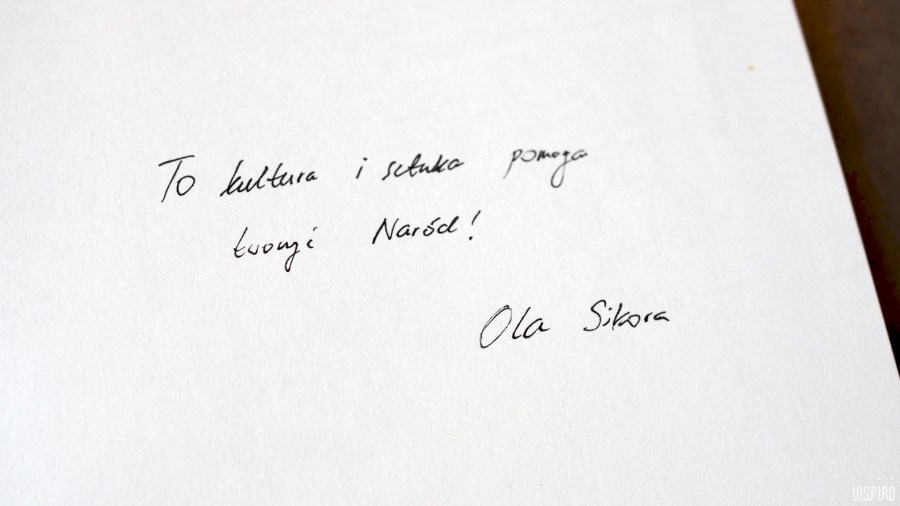 To kultura i sztuka pomoga
tworzyć Naród!
Ola Sikora
inspiro